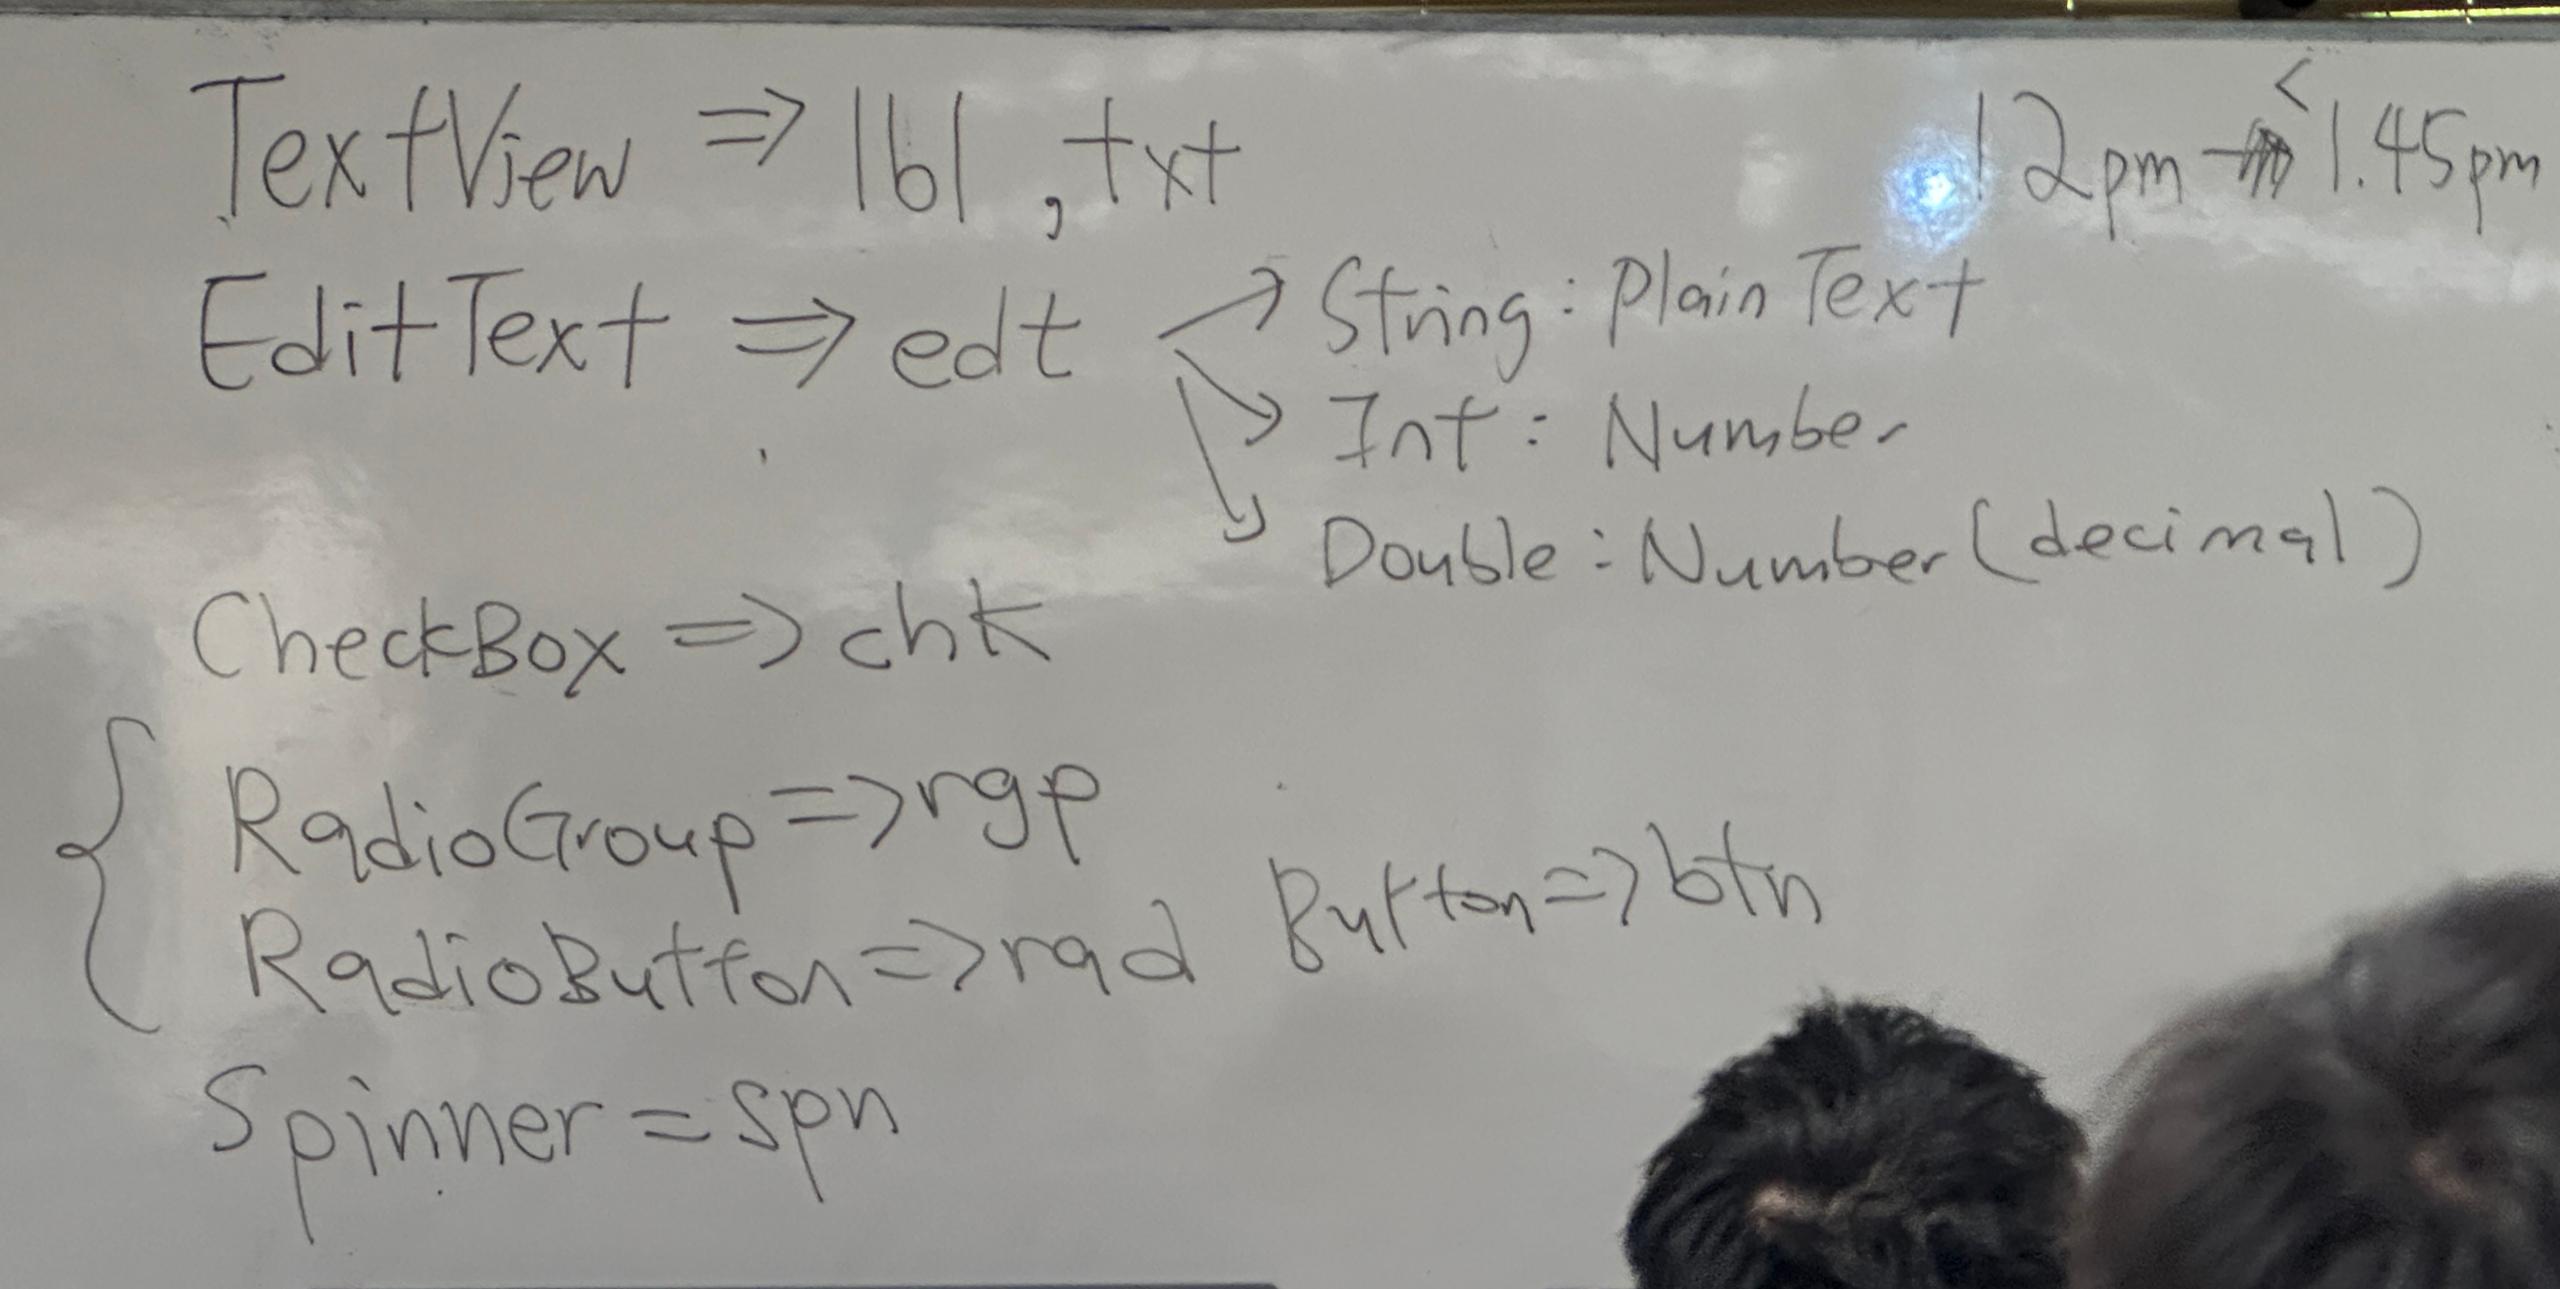 TextView => lbl, txt
12pm - 1.45pm
EditText => edt
String: Plain Text
Int: Number
Double: Number (decimal)
CheckBox => chk
RadioGroup => rgp
RadioButton => rad
Button => btn
Spinner = spn